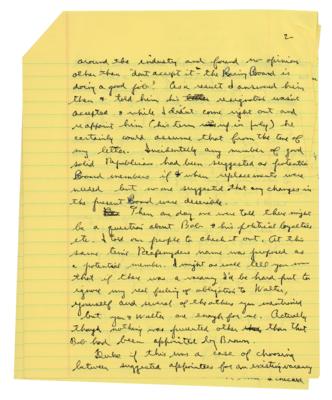 2-
around the industry and found no opinion
other than "don't accept it" - the Racing Board is
doing a good job! As a result I answered him
then & told him his resignation wasn't
accepted & while I didn't come right out and
reappoint him (his term up in July) he
certainly could assume that from the tone of
my letter. Incidentally any number of good
solid Republicans had been suggested as potential
Board members if & when replacements were
needed but no one suggested that any changes in
the present Board were desirable.
Then one day we were told there might
be a question about Bob & his political loyalties
etc. I told our people to check it out. At this
same time name was proposed as
a potential member. I might as well tell you now
that if there was a vacancy I'd be hard put to
ignore my real feeling of obligation to Walter,
yourself and several of the others you mentioned
but you & Walter are enough for me. Actually
though nothing was presented other than that
Bob had been appointed by Brown.
Duke if this was a case of choosing
between suggested appointees for an existing vacancy